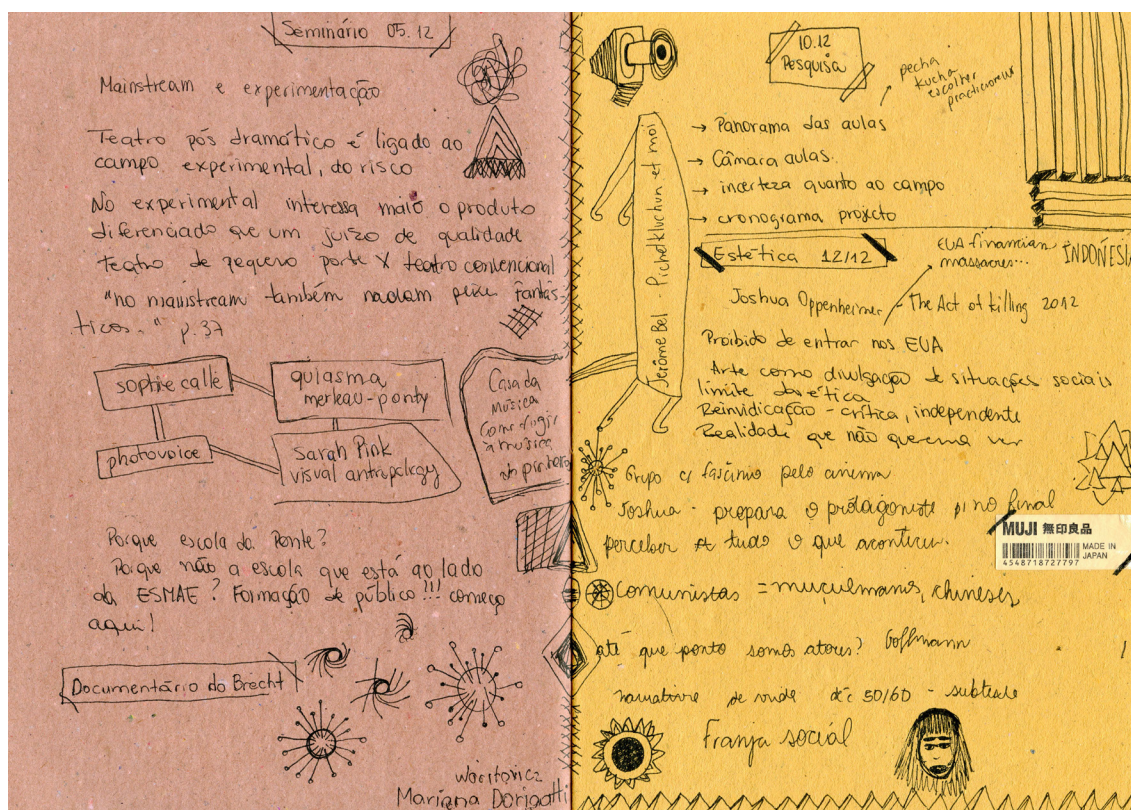 Seminário 05.12
Mainstream e experimentação
Teatro pós dramático é ligado ao
campo experimental, do risco
No experimental interessa maio o produto
diferenciado que um juízo de qualidade
teatro de pequeno porte X teatro convencional
"no mainstream também nadam peixe fantás-
ticos." p. 37
sophie calle
quiasma
merleau-ponty
photovoice
sarah Pink
visual antropology
Casa da
música
Como fugir
a música
do pinheiro
Porque escola da Ponte?
Porque não a escola que está ao lado
da ESMAE? Formação de público!!! começo
aqui!
Documentário do Brecht
Waritovicz
Mariana Dorigatti
10.12
Pesquisa
pecha
kucha
escolher
practicioneur
→ Panorama das aulas
→ Câmara aulas.
→ incerteza quanto ao campo
→ cronograma projecto
Jerôme Bel - Pichet klunchun et moi
Estética 12/12
EUA financian
massacres...
INDONÉSIA
Joshua Oppenheimer - The Act of killing 2012
Proibido de entrar nos EUA
Arte como divulgação de situações sociais
limite da ética
Reinvidicação - crítica, independente
Realidade que não queremos ver
Grupo c/ fascínio pelo cinema
Joshua - prepara o prótagoniste p/ no final
perceber tudo o que aconteceu.
Comunistas = muçulmanos, chineses
até que ponto somos atores? Goffmann
narrative de vida déc 50/60 -
Franja social
MUJI 無印良品
MADE IN
JAPAN
4548718727797